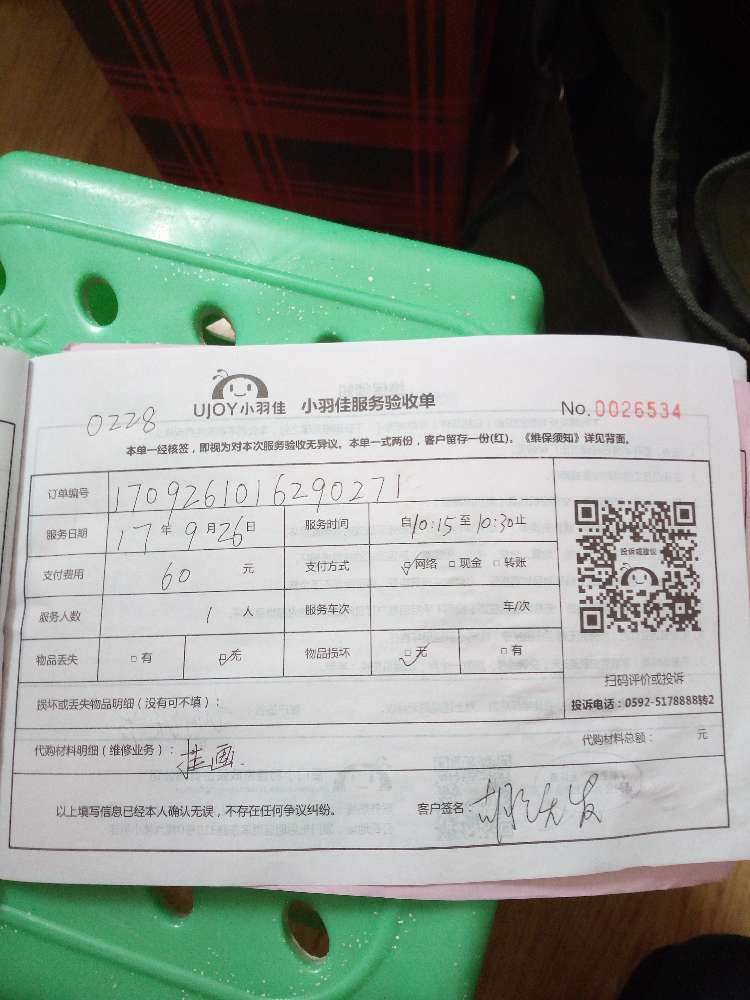 0228
UJOY小羽佳 小羽佳服务验收单
No. 0026534
本单一经核签，即视为对本次服务验收无异议。本单一式两份，客户留存一份(红)。《维保须知》详见背面。
订单编号 1709261016290271
服务日期 17年9月26日 服务时间 自10:15至10:30止
支付费用 60 元 支付方式 网络 □现金 □转账
服务人数 1人 服务车次 车/次
物品丢失 □有 □无 物品损坏 □无 □有
投诉或建议
扫码评价或投诉
投诉电话：0592-5178888转2
损坏或丢失物品明细（没有可不填）：
代购材料明细（维修业务）：挂画
代购材料总额： 元
以上填写信息已经本人确认无误，不存在任何争议纠纷。 客户签名：